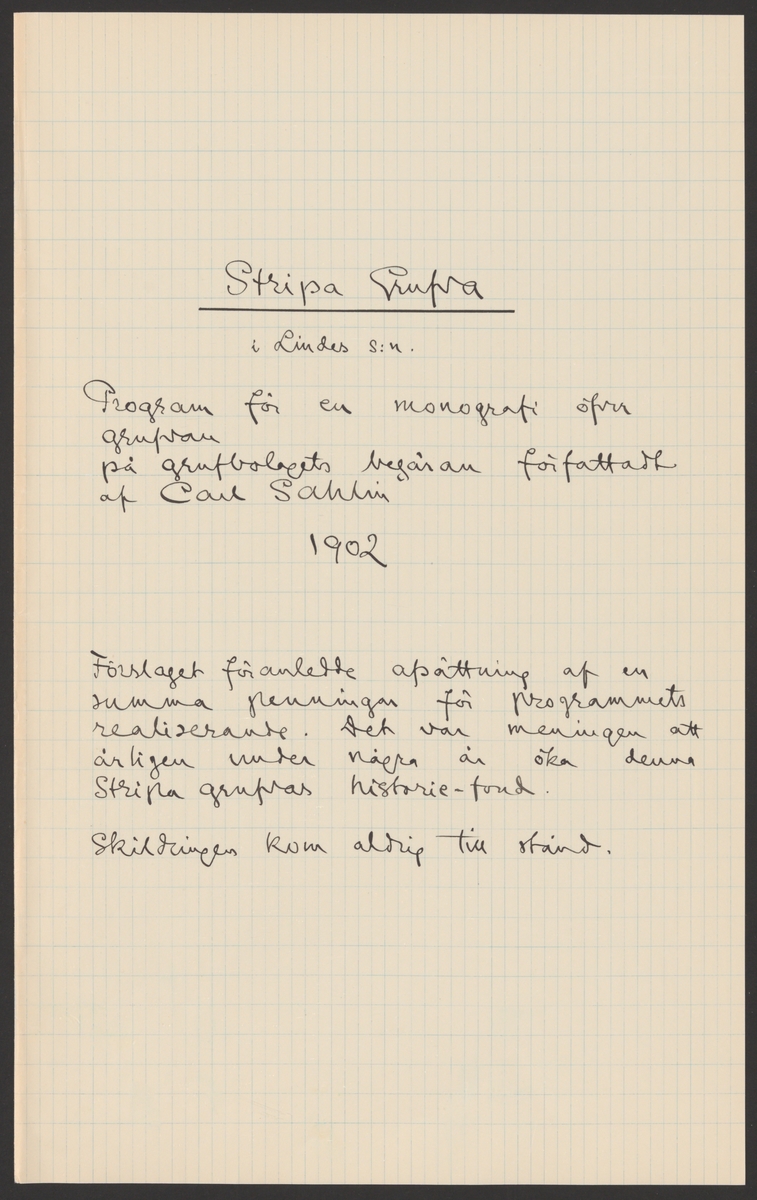 Stripa Grufva
i Lindes s:n.
Program för en monografi öfver
grufvan
på grufbolagets begäran författadt
af Carl Sahlin
1902
Förslaget föranledde afsättning af en
summa penningar för programmets
realiserande. Det var meningen att
årligen under några år öka denna
Stripa grufvas historie-fond.
Skildringen kom aldrig till stånd.